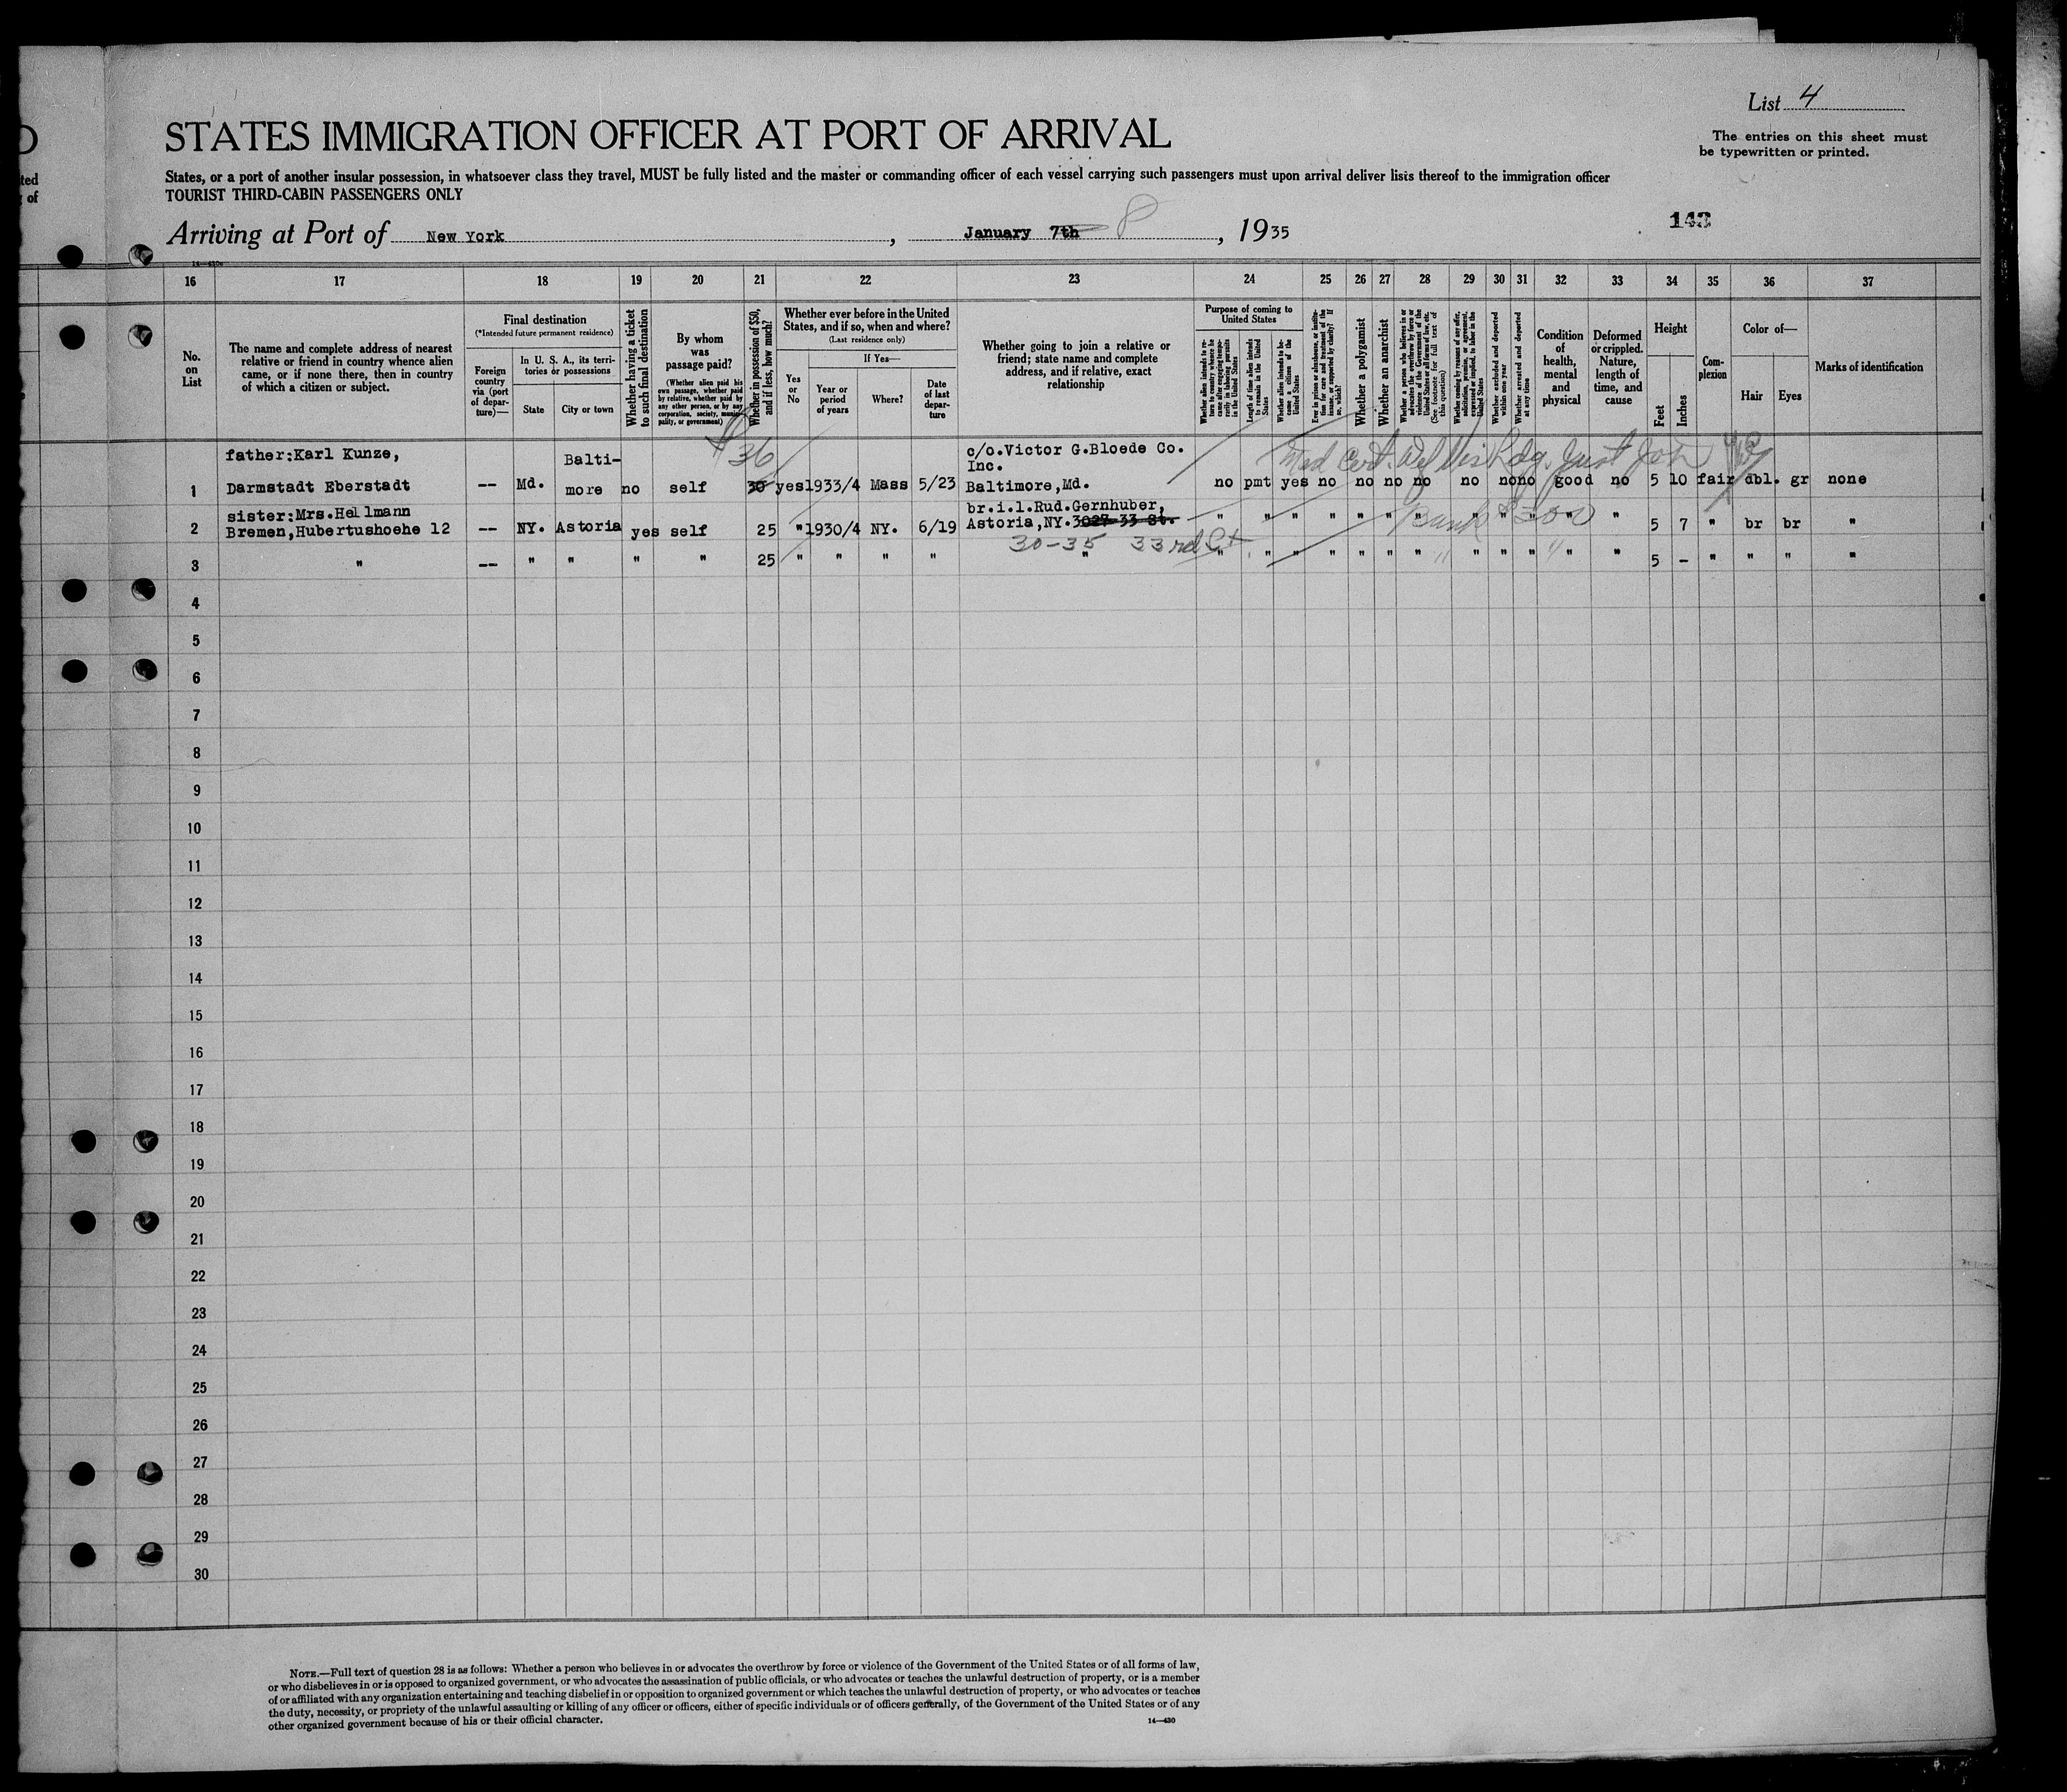 List 4
The entries on this sheet must
be typewritten or printed.
STATES IMMIGRATION OFFICER AT PORT OF ARRIVAL
States, or a port of another insular possession, in whatsoever class they travel, MUST be fully listed and the master or commanding officer of each vessel carrying such passengers must upon arrival deliver lists thereof to the immigration officer
TOURIST THIRD-CABIN PASSENGERS ONLY
Arriving at Port of New York, January 7th 8, 1935
143
16 17 18 19 20 21 22 23 24 25 26 27 28 29 30 31 32 33 34 35 36 37
No. on List
The name and complete address of nearest relative or friend in country whence alien came, or if none there, then in country of which a citizen or subject.
Final destination
(*Intended future permanent residence)
Foreign country via (port of departure)—
In U. S. A., its territories or possessions
State
City or town
Whether having a ticket to such final destination
By whom was passage paid?
(Whether alien paid his own passage, whether paid by relative, whether paid by any other person, or by any corporation, society, municipality, or government)
Whether in possession of $50, and if less, how much?
Whether ever before in the United States, and if so, when and where?
(Last residence only)
Yes or No
If Yes—
Year or period of years
Where?
Date of last departure
Whether going to join a relative or friend; state name and complete address, and if relative, exact relationship
Purpose of coming to United States
Whether alien intends to return to country whence he came after engaging temporarily in laboring pursuits in the United States
Length of time alien intends to remain in the United States
Whether alien intends to become a citizen of the United States
Ever in prison or almshouse, or institution for care and treatment of the insane, or supported by charity? If so, which?
Whether a polygamist
Whether an anarchist
Whether a person who believes in or advocates the overthrow by force or violence of the Government of the United States or all forms of law, etc. (See footnote for full text of this question)
Whether coming by reason of any offer, solicitation, promise, or agreement, expressed or implied, to labor in the United States
Whether excluded and deported within one year
Whether arrested and deported at any time
Condition of health, mental and physical
Deformed or crippled. Nature, length of time, and cause
Height
Feet
Inches
Complexion
Color of—
Hair
Eyes
Marks of identification
$36
Med Cert.
1 father:Karl Kunze, Darmstadt Eberstadt -- Md. Baltimore no self 30 yes 1933/4 Mass 5/23 c/o.Victor G.Bloede Co. Inc. Baltimore,Md. no pmt yes no no no no no no no good no 5 10 fair dbl. gr none
2 sister:Mrs.Hellmann Bremen,Hubertushoehe 12 -- NY. Astoria yes self 25 " 1930/4 NY. 6/19 br.i.l.Rud.Gernhuber, Astoria,NY.3027-33 St. " " " " " " " " " " " " 5 7 " br br "
30-35 33rd St
Bank $300
3 " -- " " " " 25 " " " " " " " " " " " " " " " " " 5 - " " " "
4
5
6
7
8
9
10
11
12
13
14
15
16
17
18
19
20
21
22
23
24
25
26
27
28
29
30
NOTE.—Full text of question 28 is as follows: Whether a person who believes in or advocates the overthrow by force or violence of the Government of the United States or of all forms of law,
or who disbelieves in or is opposed to organized government, or who advocates the assassination of public officials, or who advocates or teaches the unlawful destruction of property, or is a member
of or affiliated with any organization entertaining and teaching disbelief in or opposition to organized government or which teaches the unlawful destruction of property, or who advocates or teaches
the duty, necessity, or propriety of the unlawful assaulting or killing of any officer or officers, either of specific individuals or of officers generally, of the Government of the United States or of any
other organized government because of his or their official character.
14—430